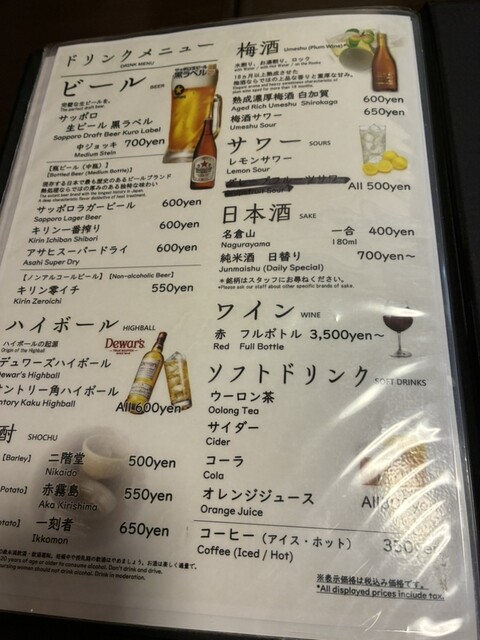 ドリンクメニュー
DRINK MENU
ビール
BEER
芳醇な生ビールを。
The perfect draft beer.
サッポロ
生ビール 黒ラベル
Sapporo Draft Beer Kuro Label
中ジョッキ 700yen
Medium Stein
【瓶ビール（中瓶）】
【Bottled Beer (Medium Bottle)】
現存する日本で最も歴史のあるビールブランド
熱処理ならではの厚みのある独特な味わい
サッポロラガービール 600yen
Sapporo Lager Beer
キリン一番搾り 600yen
Kirin Ichiban Shibori
アサヒスーパードライ 600yen
Asahi Super Dry
【ノンアルコールビール】【Non-alcoholic Beer】
キリン零イチ 550yen
Kirin Zeroichi
ハイボール
HIGHBALL
ハイボールの起源
Origin of the Highball
Dewar's
デュワーズハイボール
Dewar's Highball
サントリー角ハイボール
ntory Kaku Highball
All 600yen
酎
SHOCHU
【Barley】 二階堂 500yen
Nikaido
Potato】 赤霧島 550yen
Aka Kirishima
otato】 一刻者 650yen
Ikkomon
20 years of age or older to consume alcohol. Don't drink and drive.
nursing women should not drink alcohol. Drink in moderation.
梅酒
Umeshu (Plum Wine)
水割り、お湯割り、ロック
with Water / with Hot Water / on the Rocks
熟成濃厚梅酒 白加賀 600yen
Aged Rich Umeshu Shirokaga
梅酒サワー 650yen
Umeshu Sour
サワー
SOURS
レモンサワー
Lemon Sour
All 500yen
日本酒
SAKE
名倉山 一合 400yen
Nagurayama 180ml
純米酒 日替り 700yen～
Junmaishu (Daily Special)
＊銘柄はスタッフにお尋ねください。
*Please ask our staff about other specific brands of sake.
ワイン
WINE
赤 フルボトル 3,500yen～
Red Full Bottle
ソフトドリンク
SOFT DRINKS
ウーロン茶
Oolong Tea
サイダー
Cider
コーラ
Cola
オレンジジュース
Orange Juice
コーヒー（アイス・ホット） 350yen
Coffee (Iced / Hot)
※表示価格は税込み価格です。
*All displayed prices include tax.